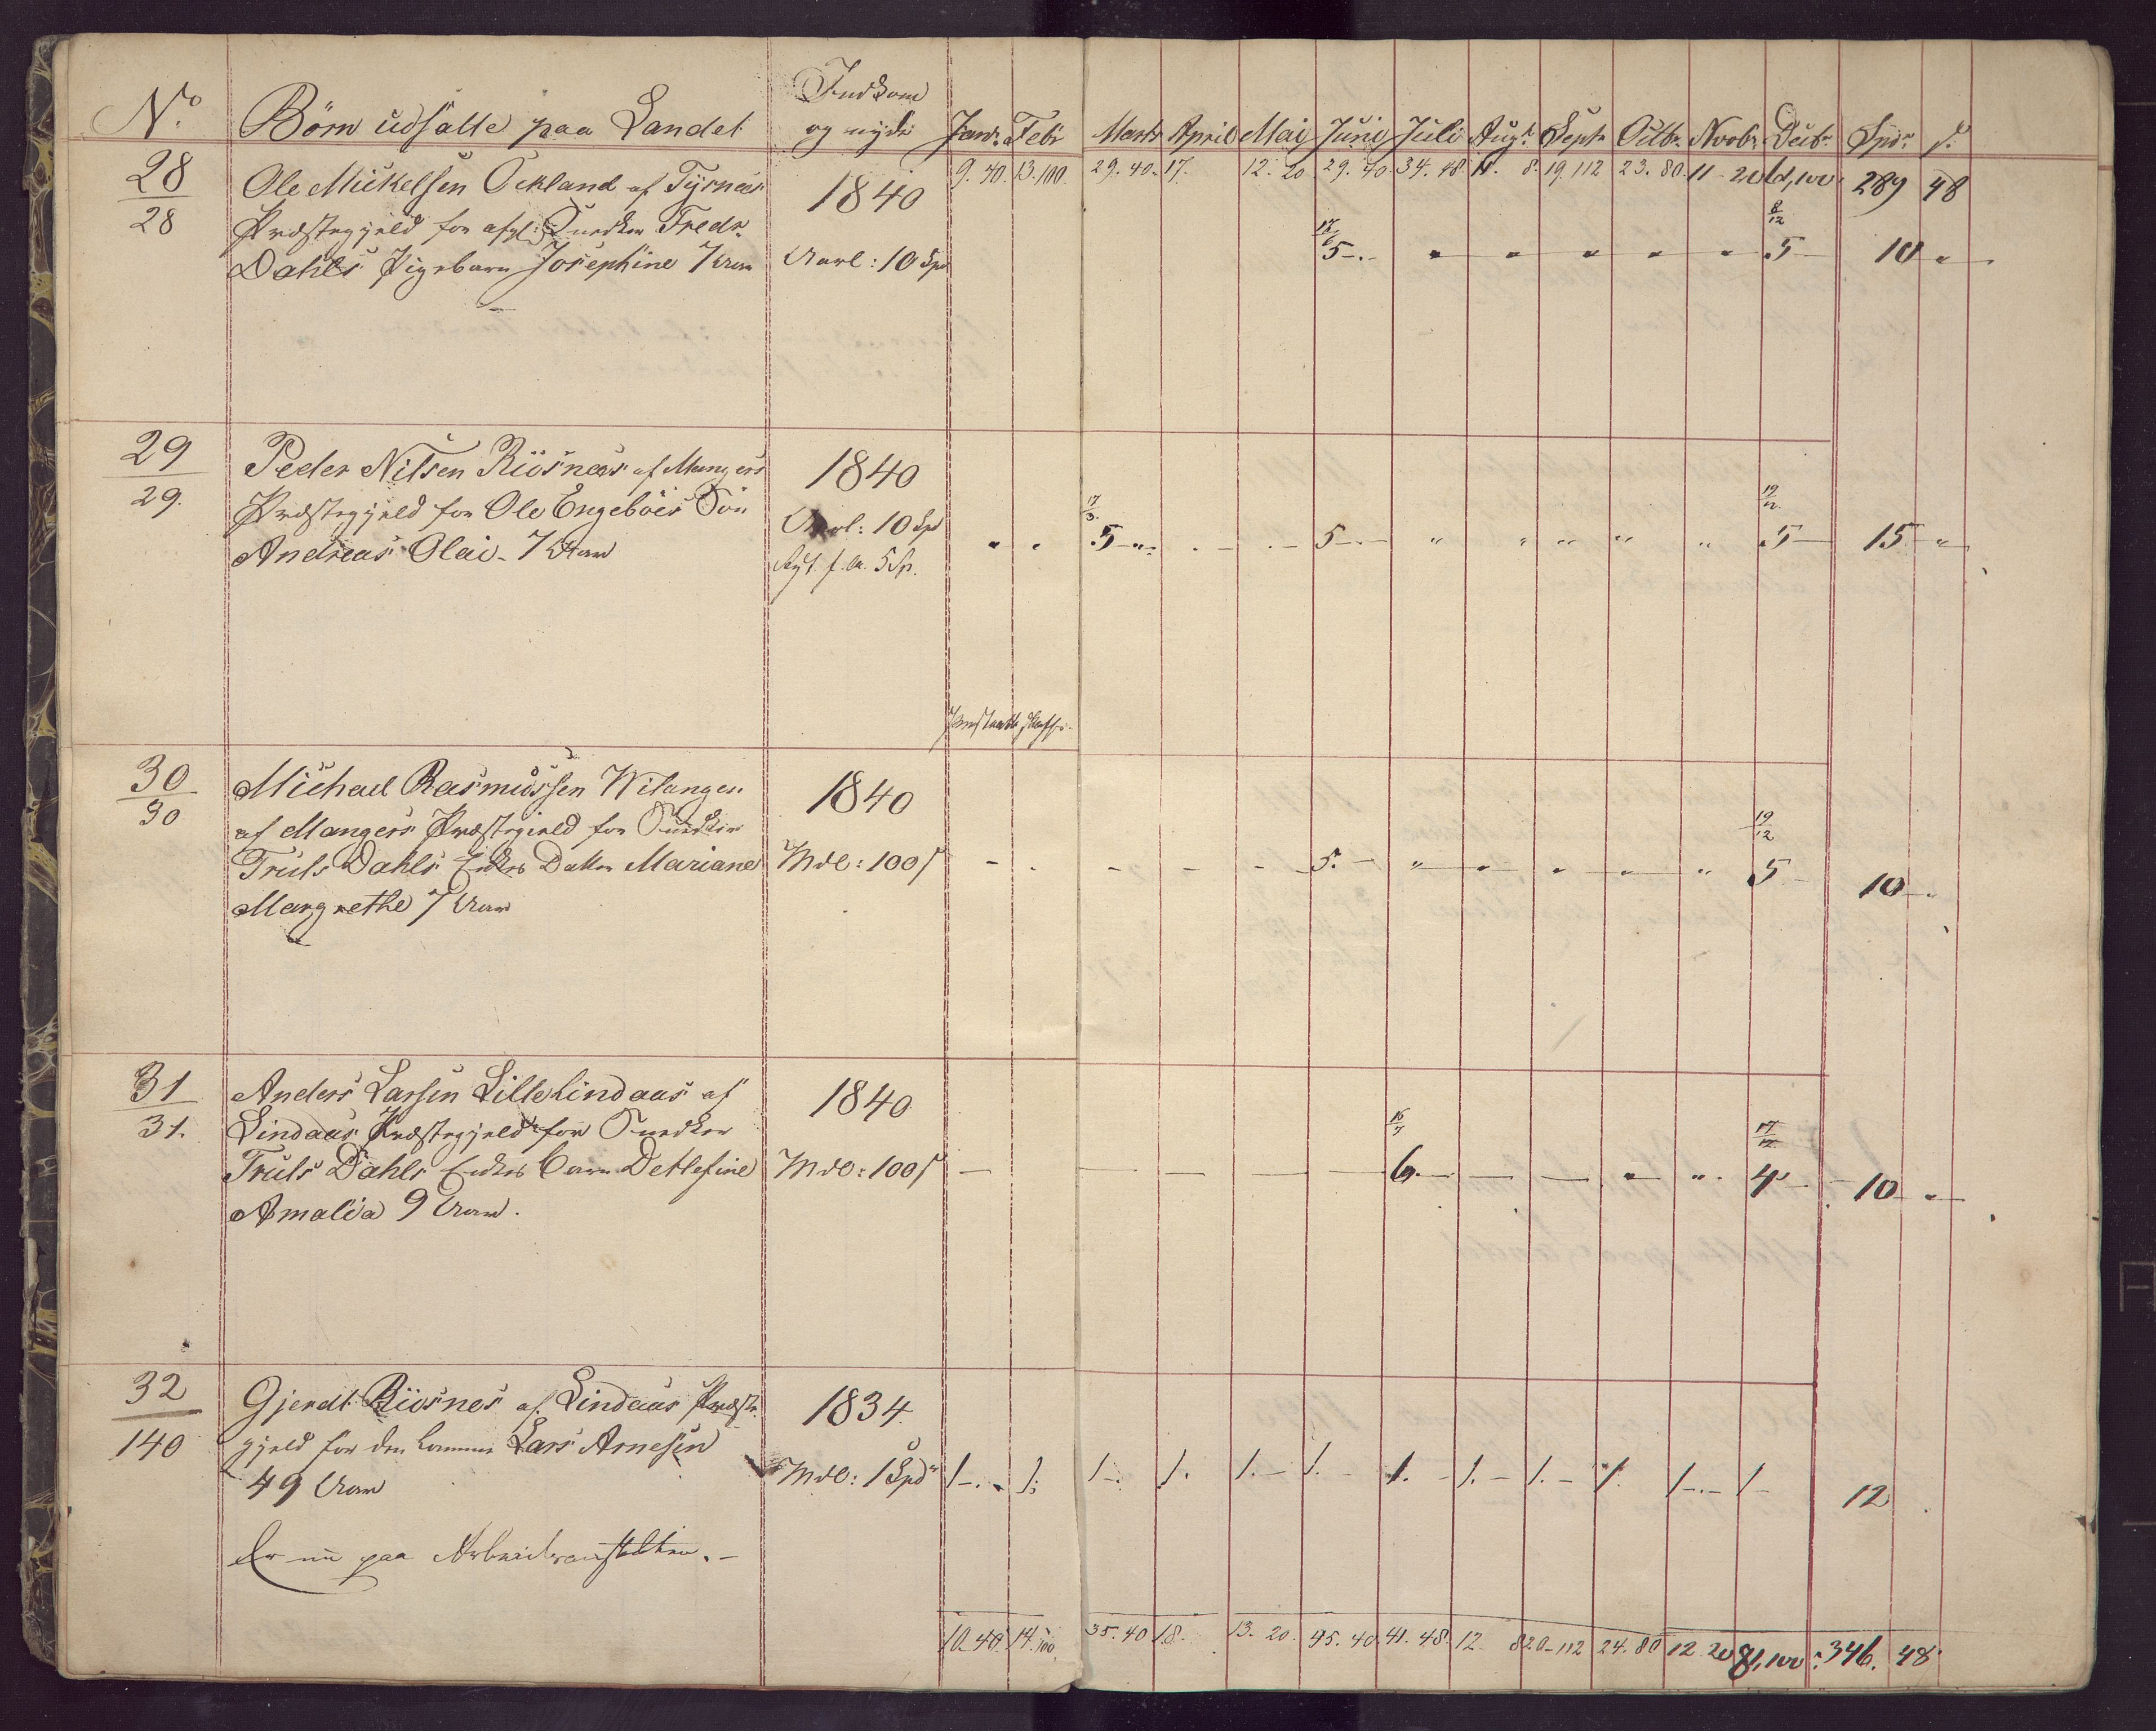 No. Börn udsatte paa Landet Indkom og nyde Janr. Febr Marts April Mai Juni Juli Augt. Septr Octbr. Novbr. Decbr. Spdr. s.
9. 40. 13. 100. 29. 40. 17. 12. 20 29. 40 34. 48 11. 8. 19. 112 23. 80. 11 - 20 289 48
28
28
Ole Mickelsen Ockland af Tysnæs
Præstegjeld for afg: Snedker Fredr.
Dahls Pigebarn Josephine 7 Aar
1840
Aarl: 10 Spd
5 - . - " " " " " 8/12 5 - 10 "
29
29.
Peder Nilsen Riisnæs af Mangers
Præstegjeld for Ole Engeböes Sön
Andreas Olai - 7 Aar
1840
Aarl: 10 Spd
f. Aa. 5 Sp.
" " 17/3. 5 - " - 5 - " " " " " 19/12. 5 - 15 - "
30
30
Michael Rasmussen Wilanger
af Mangers Præstegield for Snedker
Truls Dahls Enkes Datter Mariane
Margrethe 7 Aar
1840
Mdl: 100 s
5. - " " " " " 19/12 5 - 10 - "
31
31.
Anders Larsen Lille Lindaas af
Lindaas Præstegjeld for Snedker
Truls Dahls Enkes Barn Detlefine
Amalia 9 Aar.
1840
Mdl: 100 s
16/7 6 - - - " " 17/12 4 - 10 - "
32
140
Gjerdt Riisnes af Lindaas Præste
gjeld for den lamme Lars Arnesen
49 Aar
Er nu paa Arbeidsanstalten. -
1834
Mdl: 1 Spd
1 - . " 1. 1 - . 1. 1. - 1. - 1. - 1. - 1. - 1. 1 - . - 1 - 12
10. 40. 14. 100. 35. 40 18. 13. 20. 45. 40 41. 48. 12. 8 20 - 112 24. 80 12. 20 81. 100 346. 48